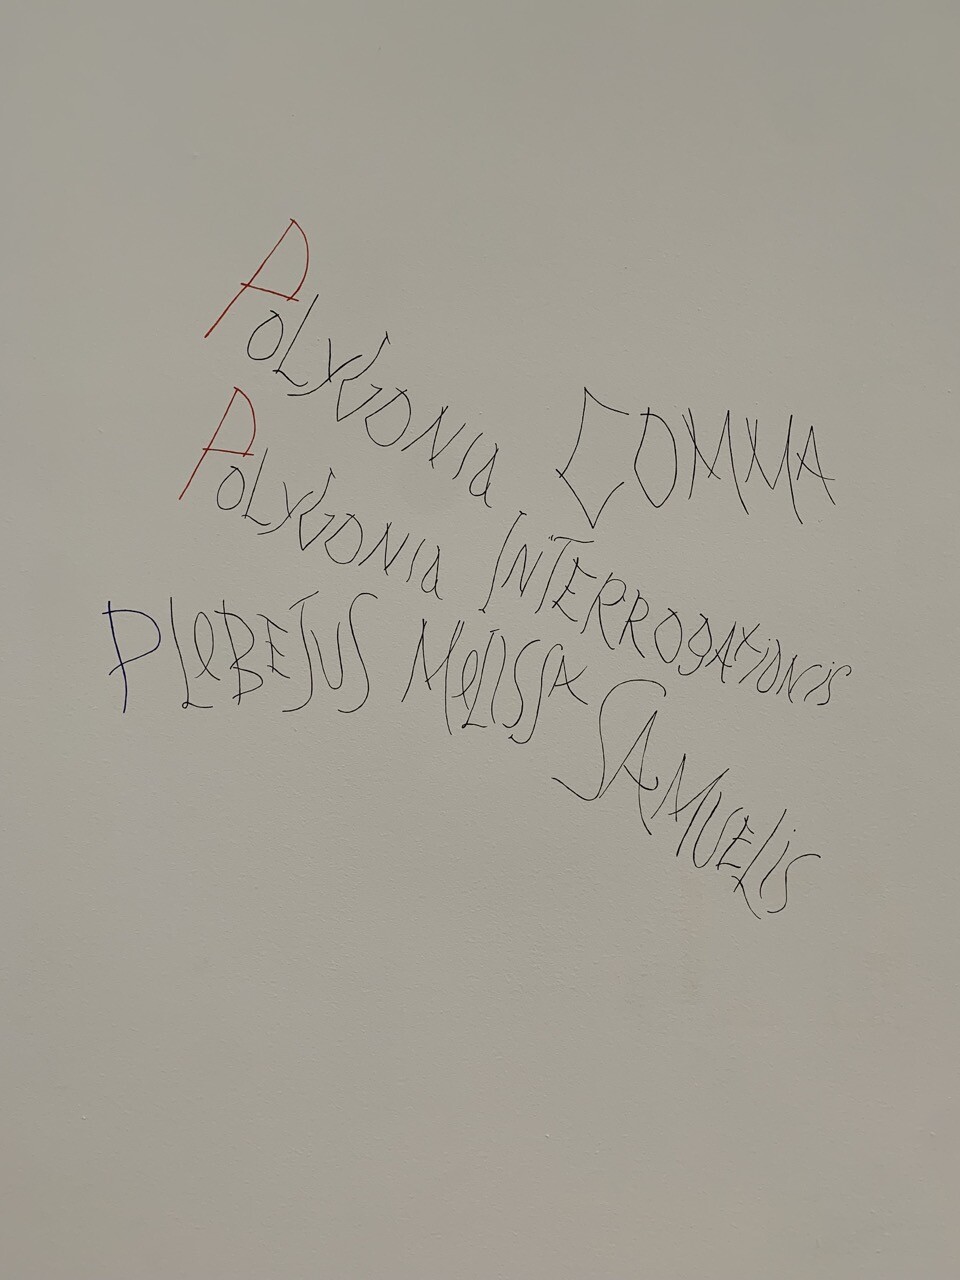 POLYGONIA COMMA
POLYGONIA INTERROGATIONIS
PLEBEJUS MELISSA SAMUELIS